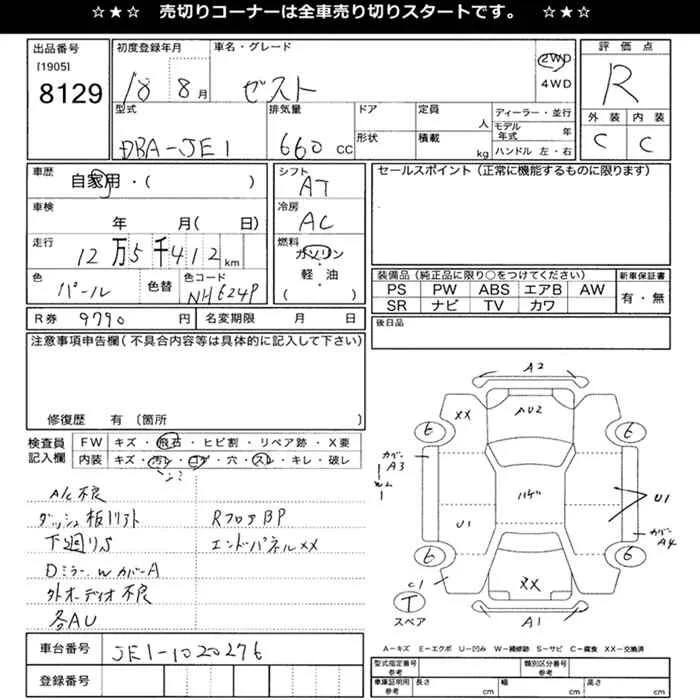 ☆★☆ 売切りコーナーは全車売り切りスタートです。 ☆★☆
出品番号
[1905]
8129
初度登録年月
18 8月
車名・グレード
ゼスト
2WD
4WD
評価点
R
外装 内装
C C
型式
DBA-JE1
排気量
660 CC
ドア
形状
定員
人
積載
kg
ディーラー・並行
モデル年式 年
ハンドル 左・右
車歴
自家用・( )
シフト
AT
車検
年 月( 日)
冷房
AC
走行
12万5千412km
燃料
ガソリン
軽・油
( )
色
パール
色替
色コード
NH624P
R券 9790 円
名変期限 月 日
セールスポイント(正常に機能するものに限ります)
装備品(純正品に限り○をつけてください)
PS PW ABS エアB AW
SR ナビ TV カワ
新車保証書
有・無
後日品
注意事項申告欄(不具合内容等は具体的に記入して下さい)
修復歴 有 〔箇所 〕
検査員記入欄
FW キズ・飛石・ヒビ割・リペア跡・X要
内装 キズ・汚レ・コゲ・穴・スレ・キレ・破レ
A/C不良
ダッシュ板リフト
下廻りS
Dミラー W カバーA
外オーディオ不良
各AU
RフロアBP
エンドパネルXX
A2
XX
AU2
6
6
カバー
A3
W2
ハゲ
U1
U1
カバー
A4
6
6
C1
XX
T
スペア
A1
A-キズ E-エクボ U-凹み W-補修跡 S-サビ C-腐食 XX-交換済
車台番号
JE1-1020276
登録番号
型式指定番号
参考
類別区分番号
参考
車庫証明用
参考
長さ cm
幅 cm
高さ cm